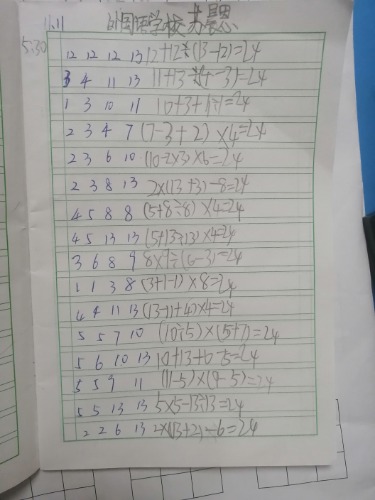 11.11 外国语学校 苏思
5:30
12 12 12 13 12+12÷(13-12)=24
3 4 11 13 11+13÷(4-3)=24
1 3 10 11 10+3+11÷1=24
2 3 4 7 (7-3+2)×4=24
2 3 6 10 (10-2×3)×6=24
2 3 8 13 2×(13+3)-8=24
4 5 8 8 (5+8÷8)×4=24
4 5 13 13 (5+13÷13)×4=24
3 6 8 9 8×9÷(6-3)=24
1 1 3 8 (3+1-1)×8=24
4 4 11 13 (13-11+4)×4=24
5 5 7 10 (10÷5)×(5+7)=24
5 6 10 13 10+13+6-5=24
5 5 9 11 (11-5)×(9-5)=24
5 5 13 13 5×5-13÷13=24
2 2 6 13 2×(13+2)-6=24